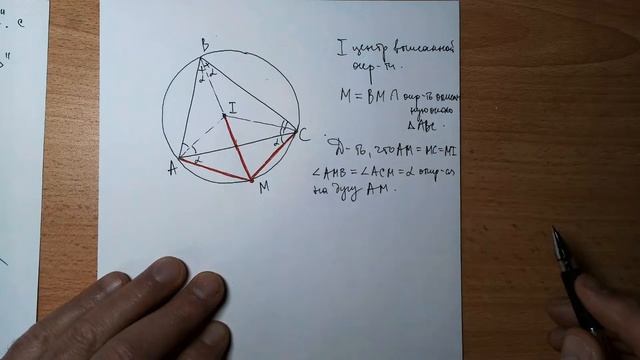 B
α α
I
C
α
A
α
M
I центр вписанной
окр-ти.
M = BM ∩
окр-ть описан
ную около
ΔABC
Д-ть, что AM = MC = MI
∠AMB = ∠ACM = α опир-ся
на дугу AM.
с
"
"